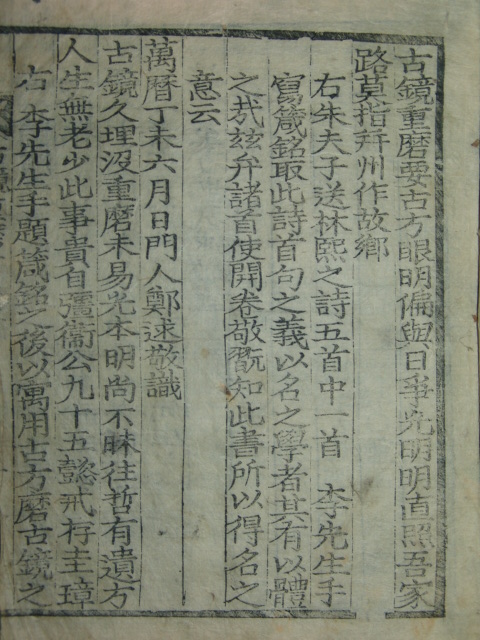 古鏡重磨要古方眼明偏與日爭光明明直照吾家
路莫指幷州作故鄉
右朱夫子送林熙之詩五首中一首 李先生手
寫箴銘取此詩首句之義以名之學者其有以體
之哉玆弁諸首使開卷敬翫知此書所以得名之
意云
萬曆丁未六月日門人鄭逑敬識
古鏡久埋沒重磨未易光本明尚不昧往哲有遺方
人生無老少此事貴自彊衞公九十五懿戒存圭璋
右 李先生手題箴銘之後以寓用古方磨古鏡之